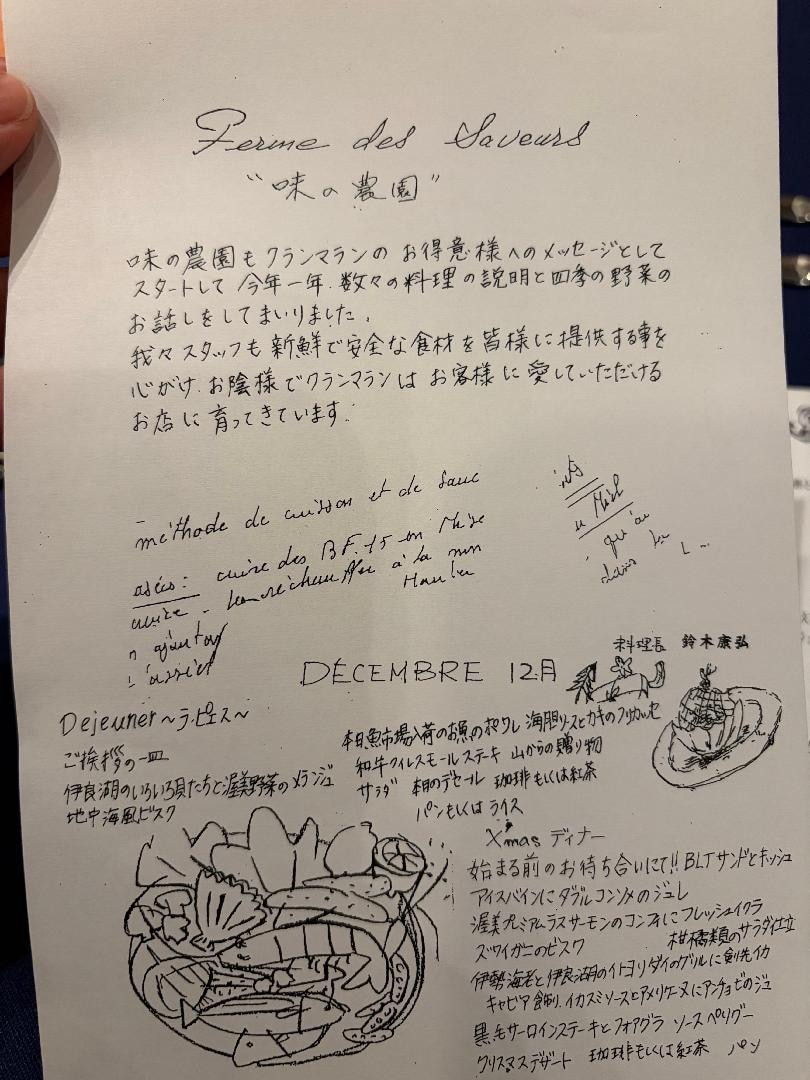 Ferme des Saveurs
"味の農園"
味の農園もクランマランの お得意様へのメッセージとして
スタートして 今年一年.数々の料理の説明と四季の野菜の
お話しをしてまいりました.
我々スタッフも 新鮮で安全な食材を皆様に提供する事を
心がけ.お陰様でクランマランは お客様に愛していただける
お店に育ってきています.
méthode de cuisson et de sauc
cuire des BF.15 en
à la
dans
DÉCEMBRE 12月
料理長 鈴木康弘
Dejeuner〜ラ・ピエス〜
ご挨拶の一皿
伊良湖のいろいろ貝たちと渥美野菜のメランジュ
地中海風ビスク
本日魚市場入荷のお魚のポワレ 海胆ソースとカキのフリカッセ
和牛クィレスモールステーキ 山からの贈り物
サラダ 本日のデセール 珈琲もしくは紅茶
パンもしくはライス
X'mas ディナー
始まる前のお待ち合いにて!! BLTサンドとホッシュ
アイスバインにダブルコンソメのジュレ
渥美プレミアムラスサーモンのコンフィにフレッシュイクラ
柑橘類のサラダ仕立
ズワイガニのビスク
伊勢海老と伊良湖のイトヨリダイのグリルに剣先イカ
キャビア飾り.イカスミソースとアメリケーヌにアンチョビのジュ
黒毛サーロインステーキとフォアグラ ソースペリグー
クリスマスデザート 珈琲もしくは紅茶 パン